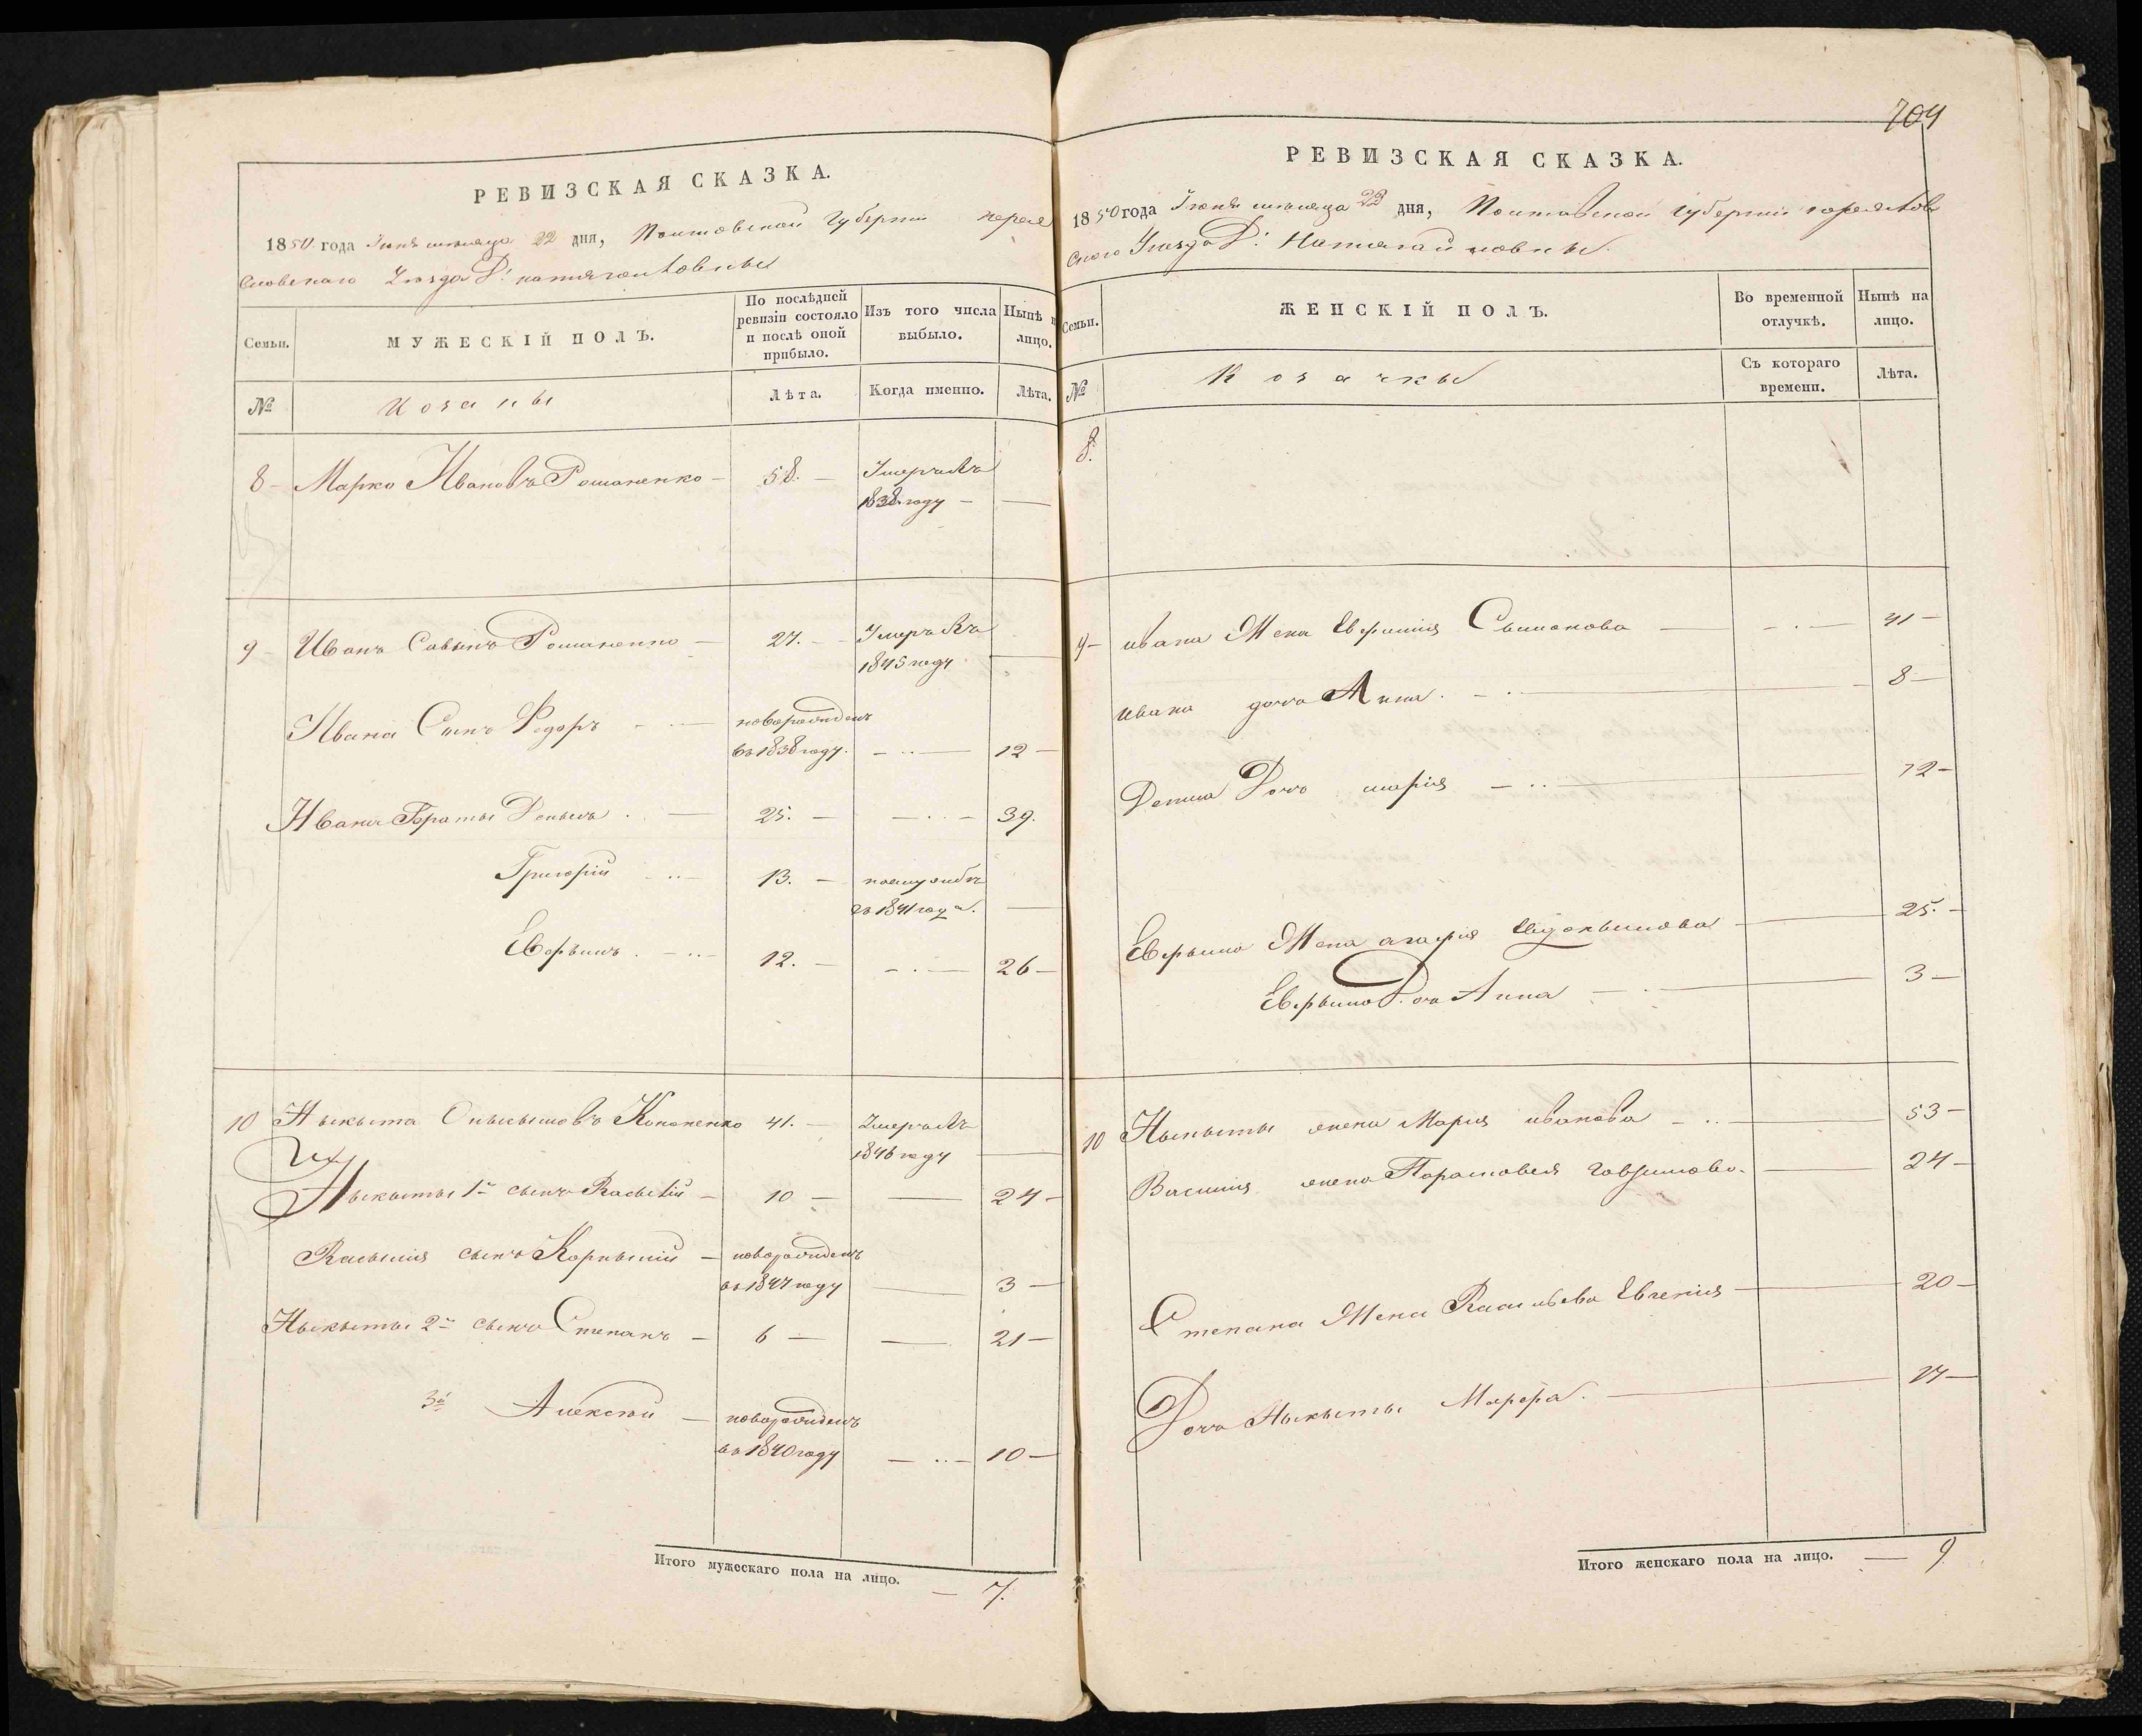 РЕВИЗСКАЯ СКАЗКА.
1850 года Іюнь мѣсяца 22 дня, Полтавской Губерніи перея
Словскаго Уезда Д:
Семьи.
МУЖЕСКІЙ ПОЛЪ.
По послѣдней ревизіи состояло и послѣ оной прибыло.
Изъ того числа выбыло.
Нынѣ н лицо.
№
Козакы
Лѣта.
Когда именно.
Лѣта.
8 Марко Ивановъ Романенко 58. Умеръ въ
1838 году
9 Иванъ Савынъ Романенко 27. Умеръ въ
1845 году
Ивана Сынъ Федоръ новорожденъ
въ 1838 году. 12
Ивана Браты Демыдъ 25. 39.
Григорій 13.
въ 1841 года.
Ефрымъ 12. 26
10 Ныкыта Кононенко 41. Умеръ въ
1846 году
Ныкыты 1й сынъ Васылій 10 24
Васылія сынъ Корнылій новорожденъ
въ 1847 году 3
Ныкыты 2й сынъ Степанъ 6 21
3й Алексѣй новорожденъ
въ 1840 году 10
Итого мужескаго пола на лицо. 7.
704
РЕВИЗСКАЯ СКАЗКА.
1850 года Іюнь мѣсяца 22 дня, Полтавской губерніи переяслов
Ского Уезда Д:
Семьи.
ЖЕНСКІЙ ПОЛЪ.
Во временной отлучкѣ.
Нынѣ на лицо.
№
Козачкы
Съ котораго времени.
Лѣта.
8.
9 ивана Жена Сымонова 41
ивана дочь Анна. 8
Дочь марія 12
Ефрыма Жена агафія 25.
Ефрыма Дочь Анна 3
10 Ныкыты жена Марія иванова 53
Василія жена Парасковея 24
Степана Жена Васильева Евгенія 20
Дочь Ныкыты Марфа. 17
Итого женскаго пола на лицо. 9